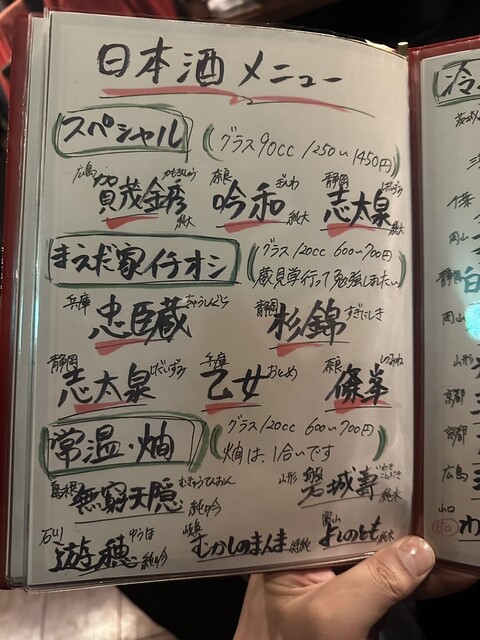 日本酒メニュー
スペシャル (グラス90cc 1250〜1450円)
広島 賀茂金秀 かもきんしゅう 純大 奈良 吟和 ぎんわ 純大 静岡 志太泉 しだいずみ 純大
まえだ家イチオシ (グラス120cc 600〜700円)
蔵見学行って勉強しました
兵庫 忠臣蔵 ちゅうしんぐら 静岡 杉錦 すぎにしき
静岡 志太泉 しだいずみ 兵庫 乙女 おとめ 奈良 篠峯 しのみね
常温・燗 (グラス120cc 600〜700円)
燗は、1合いです
島根 無窮天穏 むきゅうてんおん 純吟 山形 磐城壽 いわきことぶき 純米
石川 遊穂 ゆうほ 純吟 岐阜 むかしのまんま 特純 富山 よしのとも 純米
冷
千葉
岡山
静岡 白
岡山
山形
京都
京都
広島
山口
わ